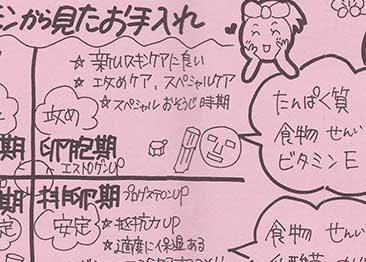 モンから見たお手入れ
☆ 新しいスキンケアに良い
☆ 攻めケア、スペシャルケア
☆スペシャルおそうじ時期
攻め
期
卵胞期
エストロゲンUP
たんぱく質
食物 せんい
ビタミン E
期
排卵期
プロゲステロンUP
安定
☆ 抵抗力UP
☆ 適度に保湿ある
食物 せんい